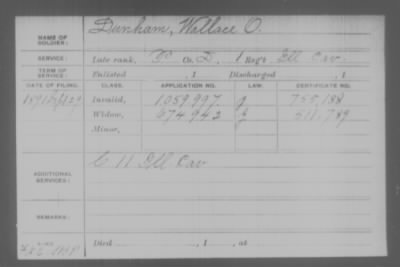 Dunham, Wallace O.
NAME OF SOLDIER:
SERVICE: Late rank, Co. D, 1 Reg't Ill Cav.
TERM OF SERVICE: Enlisted , 1 Discharged , 1
DATE OF FILING. CLASS. APPLICATION NO. LAW. CERTIFICATE NO.
Invalid, 1059997 755,188
Widow, 674942 511.789
Minor,
ADDITIONAL SERVICES: C 11 Ill. Cav
REMARKS:
Died , 1 , at